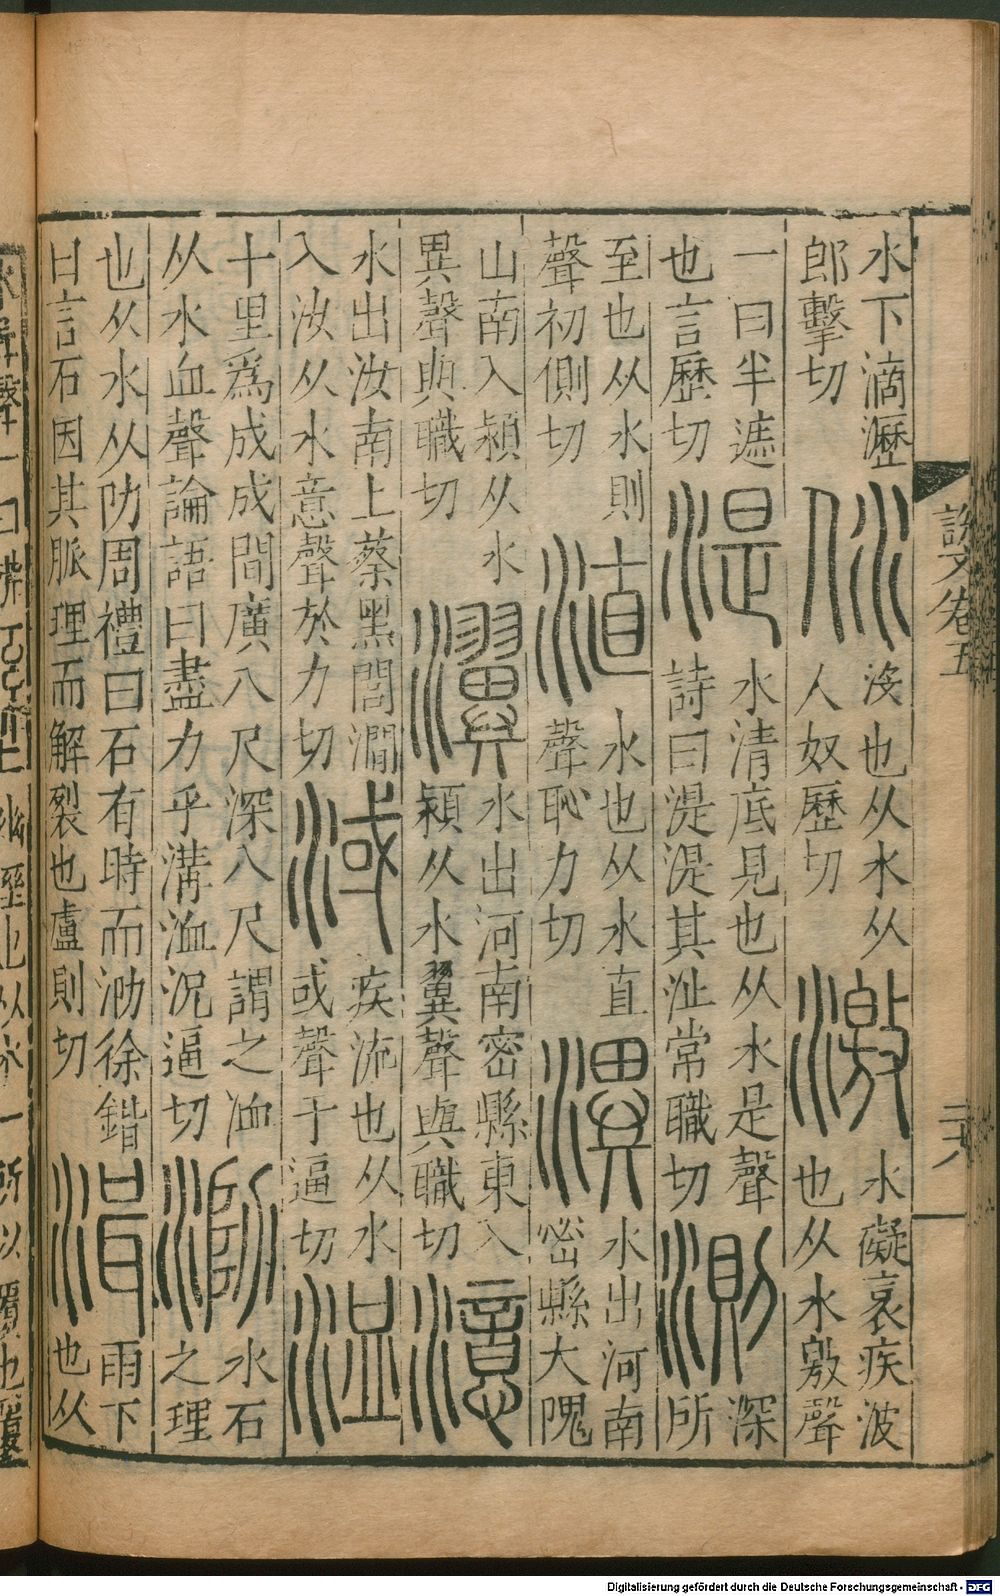 說文卷五
二十八
水下滴瀝
郎擊切
㲻
沒也从水从
人奴歷切
激
水礙衺疾波
也从水敫聲
一曰半遮
也言歷切
湜
水清底見也从水是聲
詩曰湜湜其沚常職切
測
深
所
至也从水則
聲初側切
淔
水也从水直
聲恥力切
潩
水出河南
密縣大隗
山南入潁从水
異聲與職切
瀷
水出河南密縣東入
潁从水翼聲與職切
澺
水出汝南上蔡黑閭澗
入汝从水意聲於力切
淢
疾流也从水
或聲于逼切
洫
十里爲成成間廣八尺深八尺謂之洫
从水血聲論語曰盡力乎溝洫況逼切
泐
水石
之理
也从水从阞周禮曰石有時而泐徐鍇
曰言石因其脈理而解裂也盧則切
湒
雨下
也从
Digitalisierung gefördert durch die Deutsche Forschungsgemeinschaft - DFG